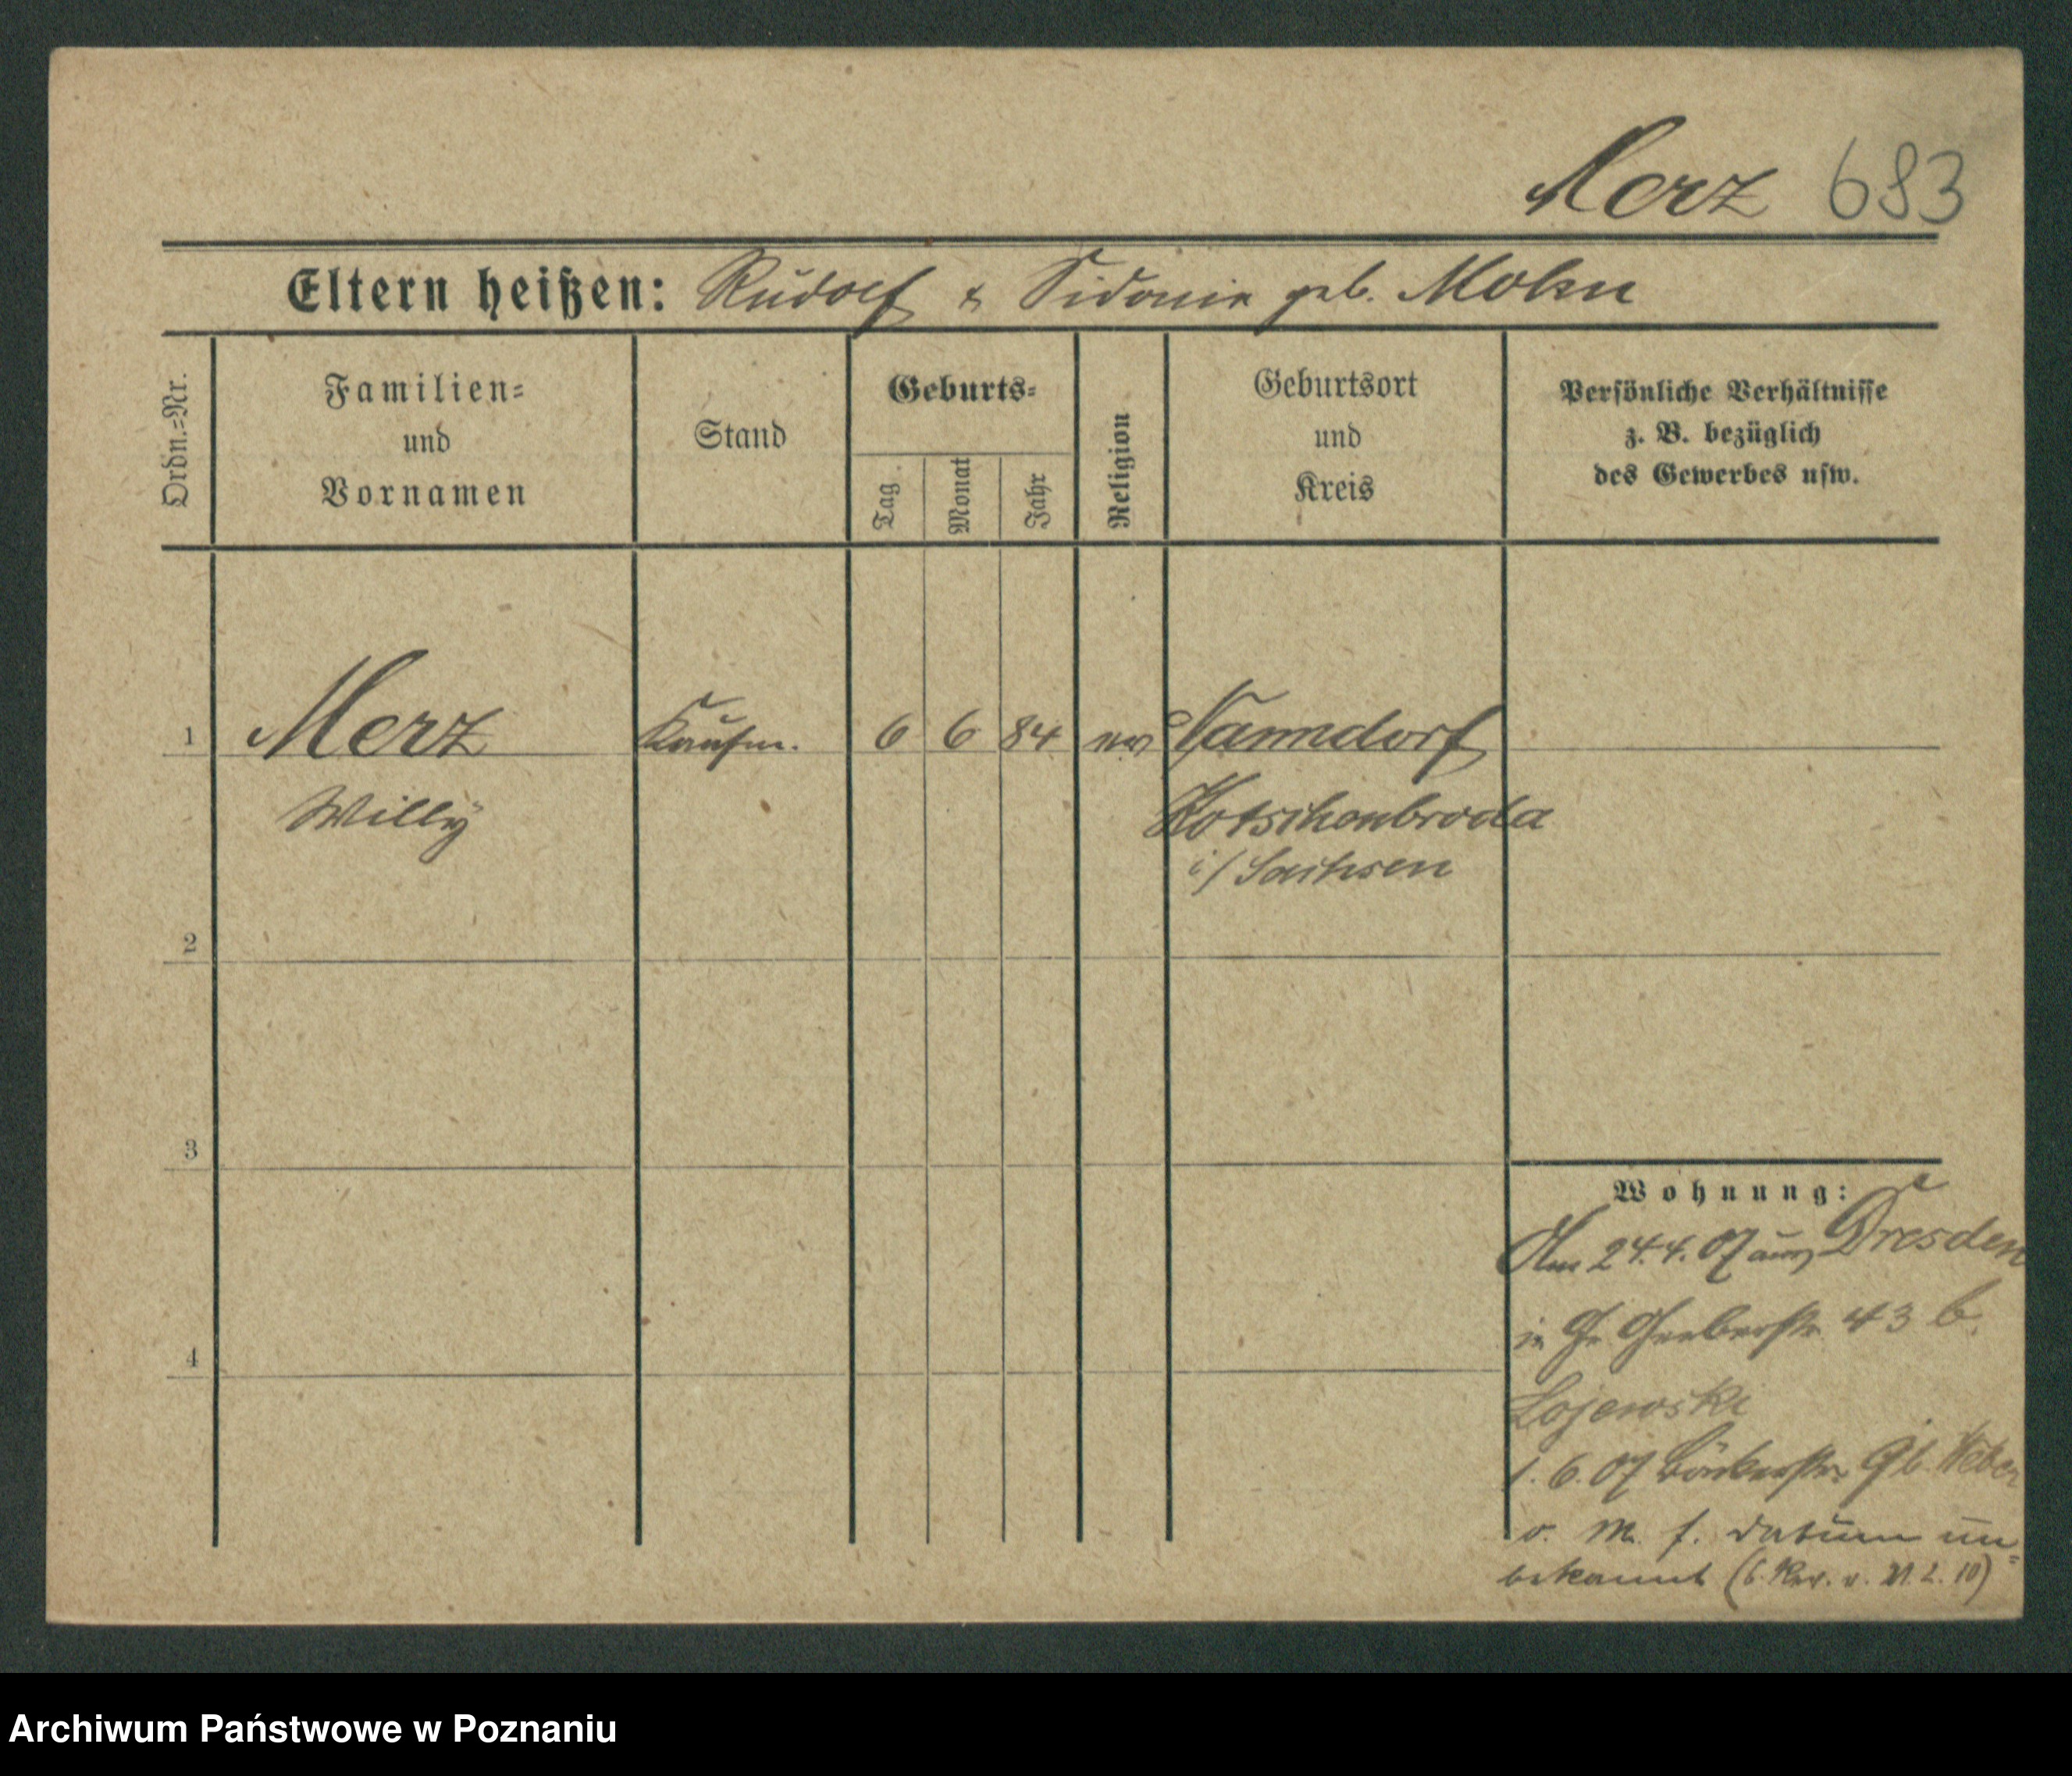 Merz 683
Eltern heißen: Rudolf & Sidonie geb. Mohn
Ordn.=Nr.
Familien=
und
Vornamen
Stand
Geburts=
Tag
Monat
Jahr
Religion
Geburtsort
und
Kreis
Persönliche Verhältnisse
z. B. bezüglich
des Gewerbes usw.
1 Merz Kaufm. 6 6 84 ev Naundorf
Willy Kotschenbroda
i/ Sachsen
2
3
4
Wohnung:
Am 24.4.07 aus Dresden
in Gr Gerberstr. 43 b.
Lojewski
1.6.07 Bäckerstr. b. Weber
v. M. f. Datum un=
bekannt (6. Rev. v. 21.2.10)
Archiwum Państwowe w Poznaniu